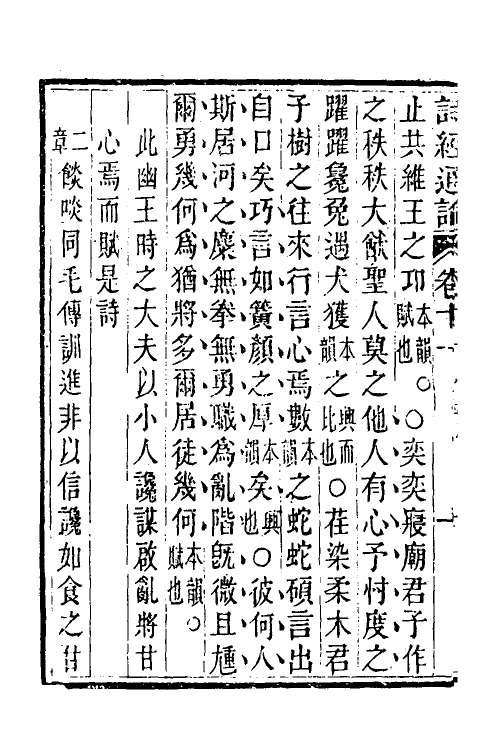 詩經通論 卷十一
止共維王之卭本韻。賦也○奕奕寢廟君子作
之秩秩大猷聖人莫之他人有心予忖度之
躍躍毚兔遇犬獲本韻之興而比也○荏染柔木君
子樹之往來行言心焉數本韻之蛇蛇碩言出
自口矣巧言如簧顏之厚本韻矣興也○彼何人
斯居河之麋無拳無勇職為亂階既微且尰
爾勇幾何為猶將多爾居徒幾何本韻。賦也
此幽王時之大夫以小人讒謀啟亂將甘
心焉而賦是詩
二章餤啖同毛傳訓進非以信讒如食之甘